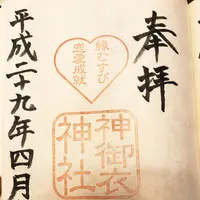 奉拝
縁むすび
恋愛成就
神御衣
神社
平成二十九年四月